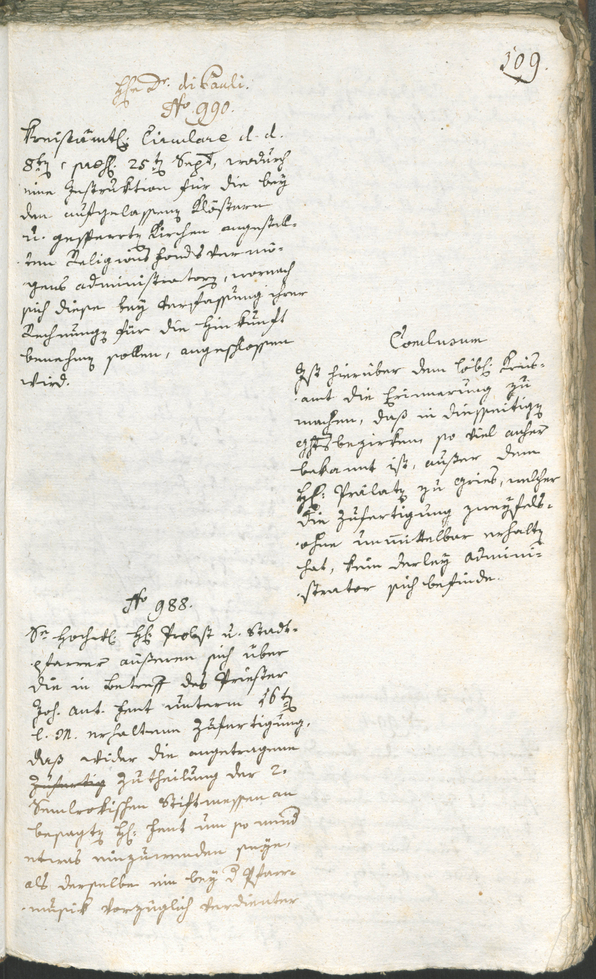 109.
Hr. Dr. di Pauli.
No. 990.
Kreisämtl. Circulare d. d.
8ten, praes. 25ten Sept., wodurch
eine Instruktion für die bey
den aufgelassenen Klöstern
u. gesperrten Kirchen angestell-
ten Religions fonds Vermö-
gens administratoren, wornach
sich diese bey Verfassung ihrer
Rechnungen für die Hinkunft
benehmen sollen, angeschlossen
wird.
Conclusum
Ist hierüber dem löbl. Kreis-
amt die Erinnerung zu
machen, daß in diesseitigen
ghtsbezirken so viel anher
bekannt ist, außer dem
H. Prälaten zu Gries, welcher
die Zufertigung zweifels-
ohne unmittelbar erhalten
hat, kein derley admini-
strator sich befinde.
No 988.
Se Hochw. H. Probst u. Stadt-
pfarrer äußeren sich über
die in Betreff des Priester
Joh. Ant. Hent unterm 16ten
l. M. erhaltene Zufertigung,
daß wider die angetragene
Zufertig Zutheilung der 2.
Semlrokischen Stiftmessen an
besagten H. Hent um so mind
etwas einzuwenden seye,
als derselbe ein bey d Pfarr-
musik vorzüglich verdienter